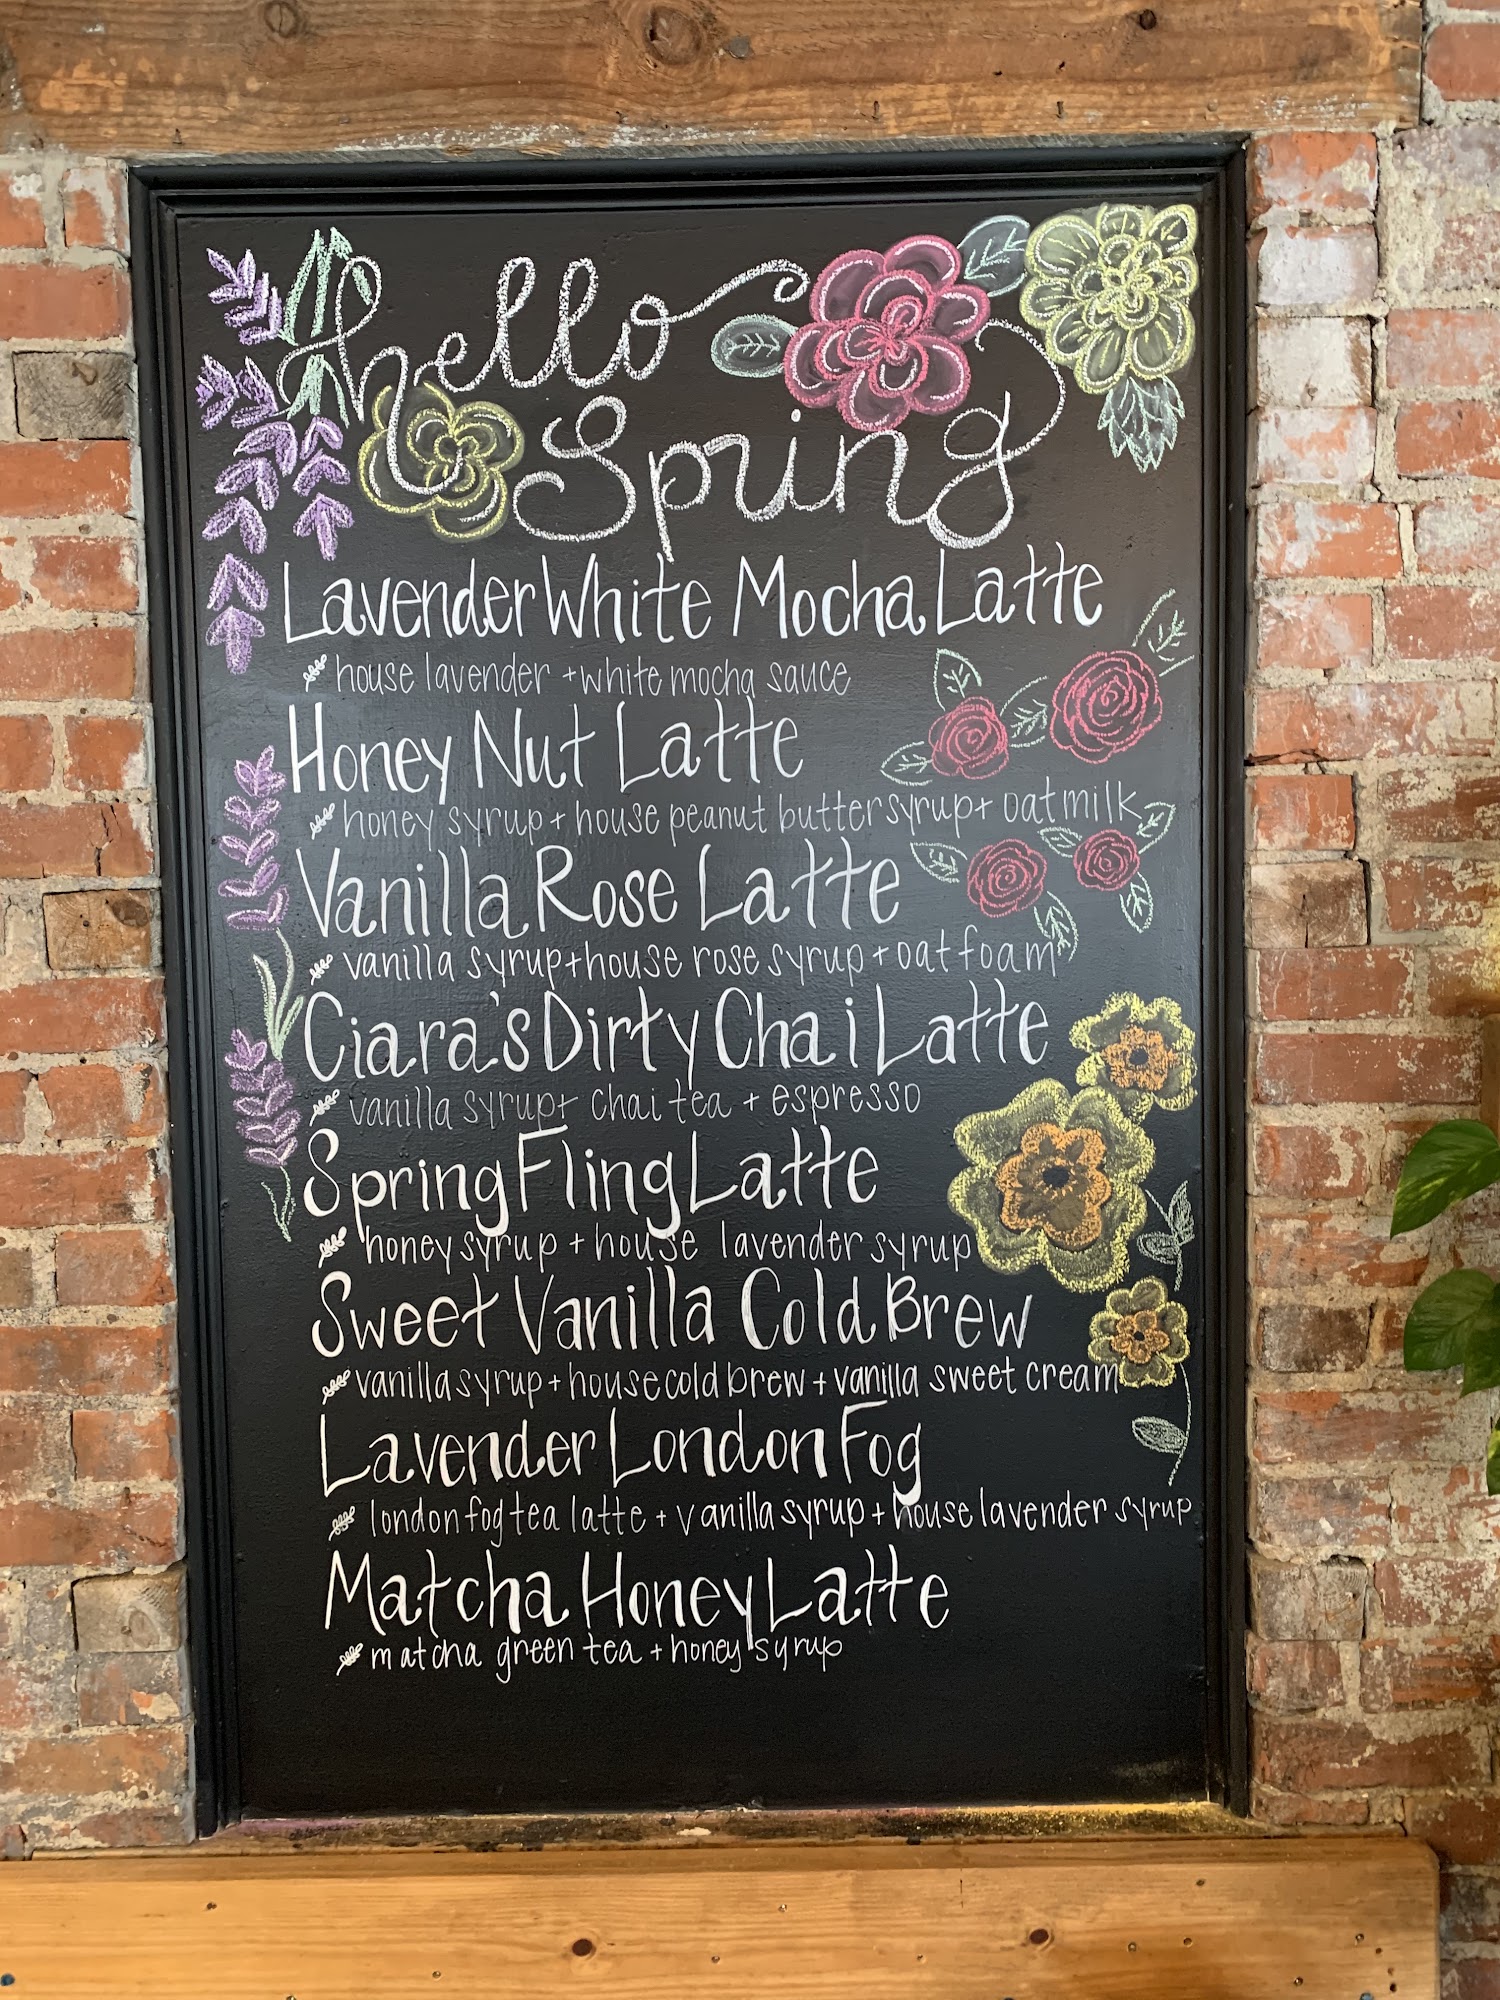 hello
Spring
Lavender White Mocha Latte
house lavender + white mocha sauce
Honey Nut Latte
honey syrup + house peanut butter syrup + oatmilk
Vanilla Rose Latte
vanilla syrup + house rose syrup + oat foam
Ciara's Dirty Chai Latte
vanilla syrup + chai tea + espresso
Spring Fling Latte
honey syrup + house lavender syrup
Sweet Vanilla Cold Brew
vanilla syrup + house cold brew + vanilla sweet cream
Lavender London Fog
london fog tea latte + vanilla syrup + house lavender syrup
Matcha Honey Latte
matcha green tea + honey syrup